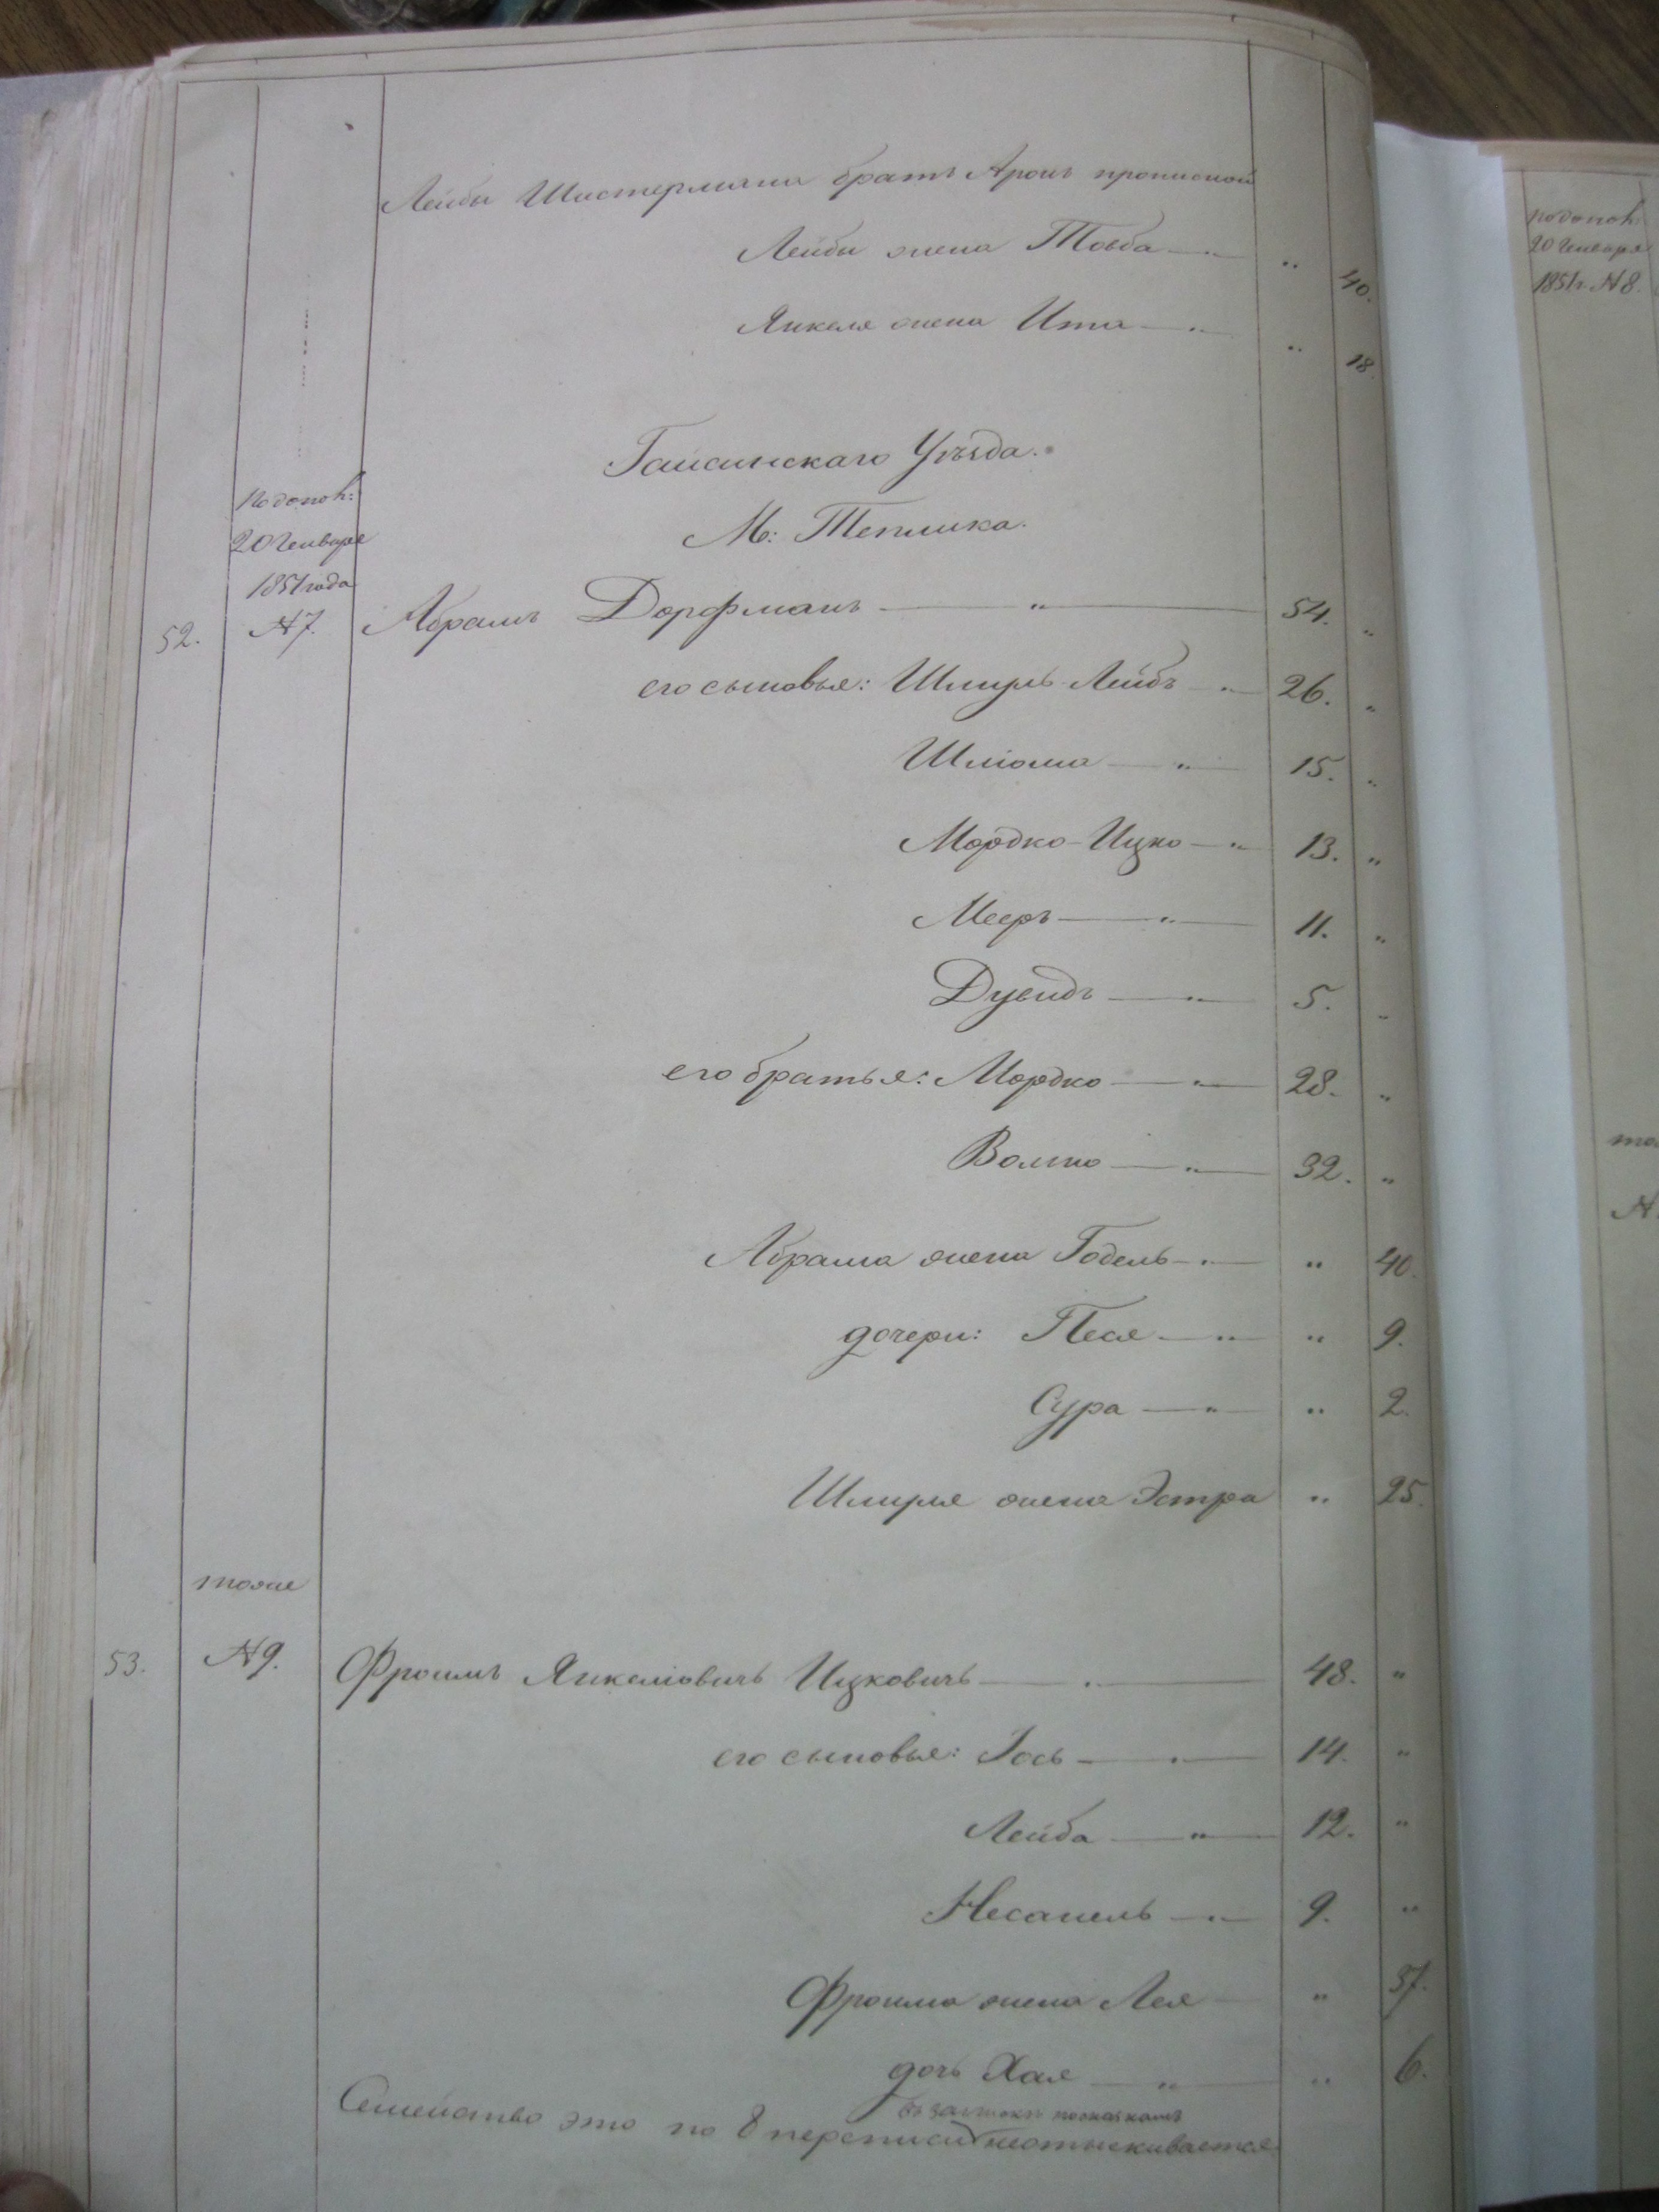 Лейбы Шистермана братъ Аронъ прописной
Лейбы жена Товба — " 40.
Янкеля жена Ита — " 18.
Гайсинскаго Уѣзда.
М: Теплика.
по допол:
20 Генваря
1851 года
52. №7. Абрамъ Дорфманъ — " — 54. "
его сыновья: Шмуль Лейбъ — " — 26. "
Шліома — " — 15. "
Мордко-Ицко — " 13. "
Мееръ — " — 11. "
Дувидъ — " — 5. "
его братья: Мордко — " — 28. "
Волько — " — 32. "
Абрама жена Годель — " — " 40.
дочери: Песя — " — " 9.
Сура — " — " 2.
Шмуля жена Эстра " 25.
тоже
53. №9. Фроимъ Янкеліовичъ Ицковичъ — " — 48. "
его сыновья: Іось — " — 14. "
Лейба — " — 12. "
Несанель — " — 9. "
Фроима жена Лея — " 37.
дочь Хая — " — " 6.
сказкамъ
Семейство это по 8 переписи неотыскивается
по допол:
20 Генваря
1851 г. №8.